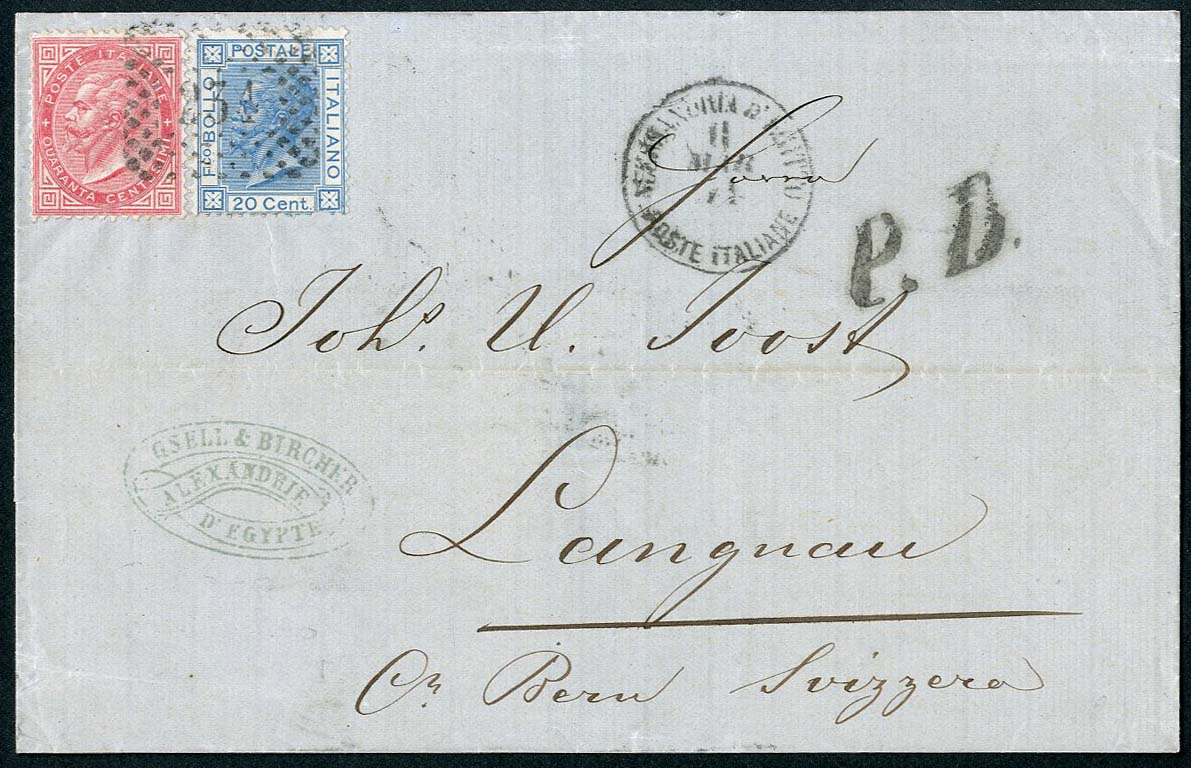 POSTE ITALIANE
QUARANTA CENTESIMI
POSTALE
Fco BOLLO
ITALIANO
20 Cent.
234
ALESSANDRIA D'EGITTO
11
MAR
71
POSTE ITALIANE
P. D.
Joh.s U. Joost
GSELL & BIRCHER
ALEXANDRIE
D'EGYPTE
Langnau
Cn Bern Svizzera